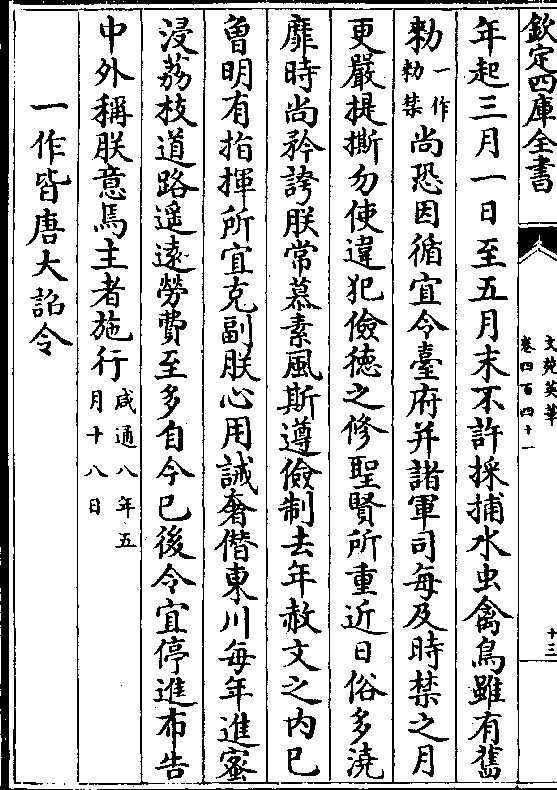 欽定四庫全書
文苑英華
卷四百四十一
十三
年起三月一日至五月末不許採捕水虫禽鳥雖有舊
勑一作勑禁尚恐因循宜令臺府并諸軍司每及時禁之月
更嚴提撕勿使違犯儉徳之修聖賢所重近日俗多澆
靡時尚矜誇朕常慕素風斯遵儉制去年赦文之内已
曾明有指揮所宜克副朕心用誡奢僭東川每年進蜜
浸荔枝道路遥逺勞費至多自今已後令宜停進布告
中外稱朕意焉主者施行咸通八年五月十八日
一作皆唐大詔令